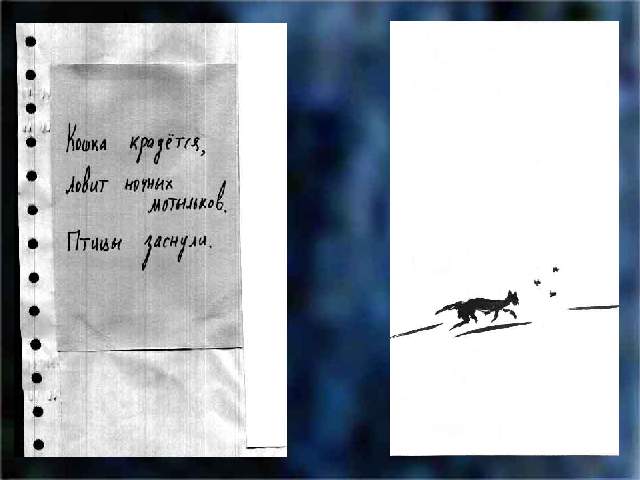 Кошка крадётся,
ловит ночных
мотыльков.
Птицы заснули.